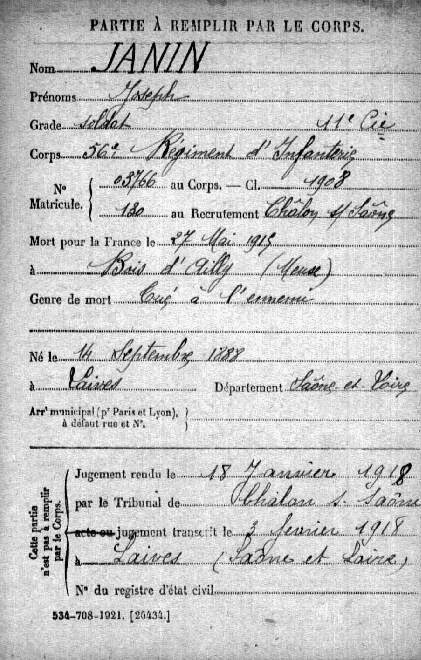 PARTIE À REMPLIR PAR LE CORPS.
Nom JANIN
Prénoms Joseph
Grade soldat 11e Cie
Corps 56e Régiment d'Infanterie
N° Matricule. { 03766 au Corps. — Cl. 1908
180 au Recrutement Châlon s/ Saône
Mort pour la France le 27 Mai 1915
à Bois d'Ailly (Meuse)
Genre de mort Tué à l'ennemi
Né le 14 Septembre 1888
à Laives Département Saône et Loire
Arrt municipal (pr Paris et Lyon),
à défaut rue et N°.
Cette partie n'est pas à remplir par le Corps.
Jugement rendu le 18 Janvier 1918
par le Tribunal de Chalon s. Saône
acte ou jugement transcrit le 3 fevrier 1918
à Laives (Saône et Loire)
N° du registre d'état civil
534-708-1921. [26434.]